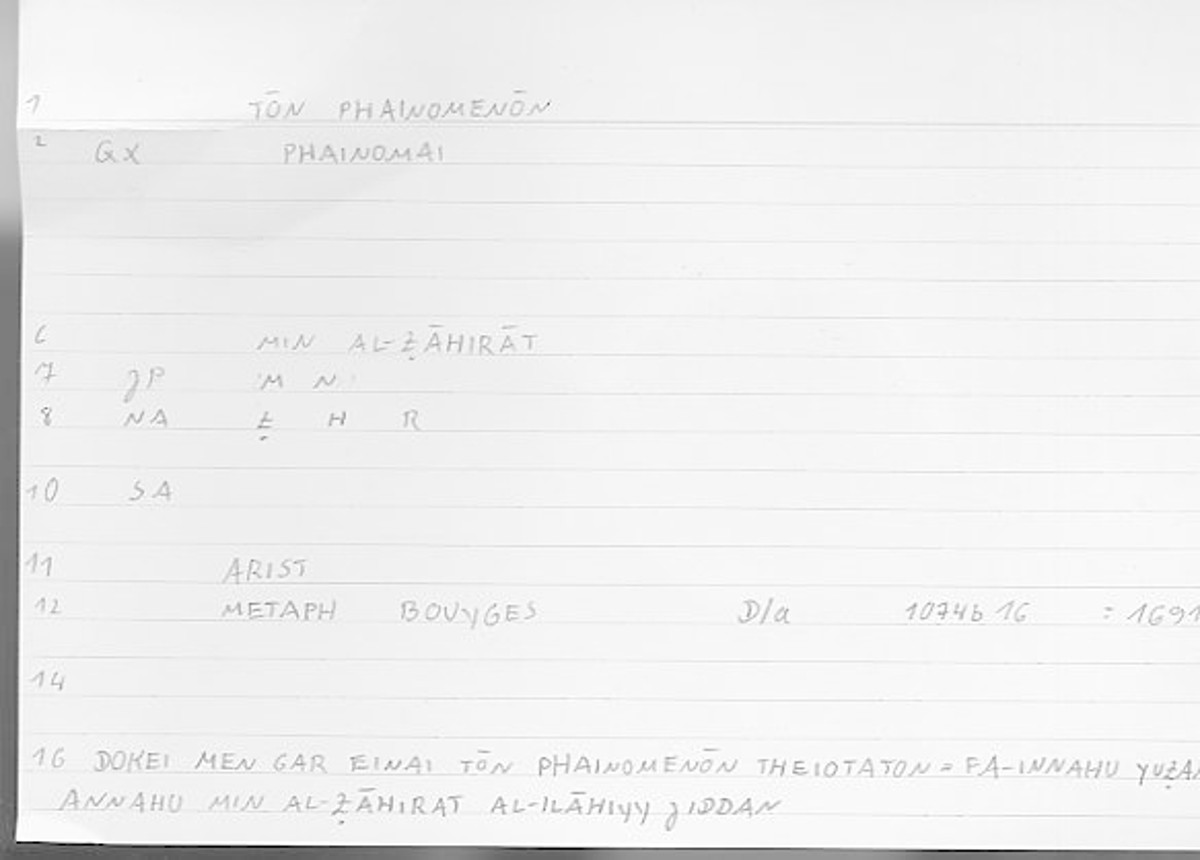 1 TŌN PHAINOMENŌN
2 GX PHAINOMAI
6 MIN AL-ẒĀHIRĀT
7 JP M N
8 NA Ẓ H R
10 SA
11 ARIST
12 METAPH BOUYGES D/a 1074b 16 = 1691
14
16 DOKEI MEN GAR EINAI TŌN PHAINOMENŌN THEIOTATON = FA-INNAHU YUẒAN
ANNAHU MIN AL-ẒĀHIRAT AL-ILĀHIYY JIDDAN